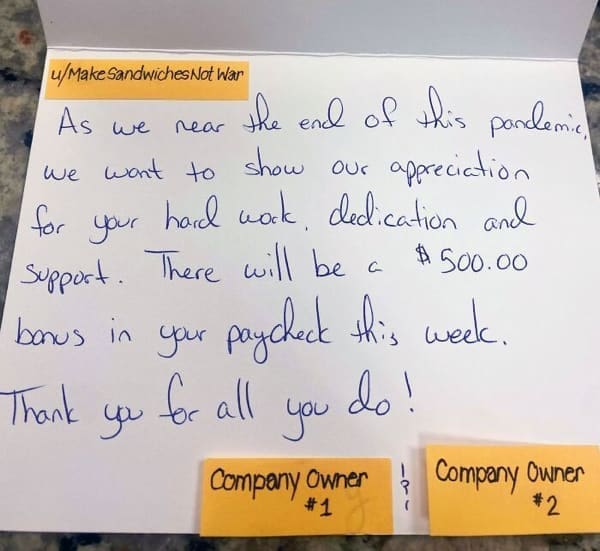 u/MakeSandwichesNotWar
As we near the end of this pandemic,
we want to show our appreciation
for your hard work, dedication and
support. There will be a $500.00
bonus in your paycheck this week.
Thank you for all you do!
Company Owner & Company Owner
#1 #2